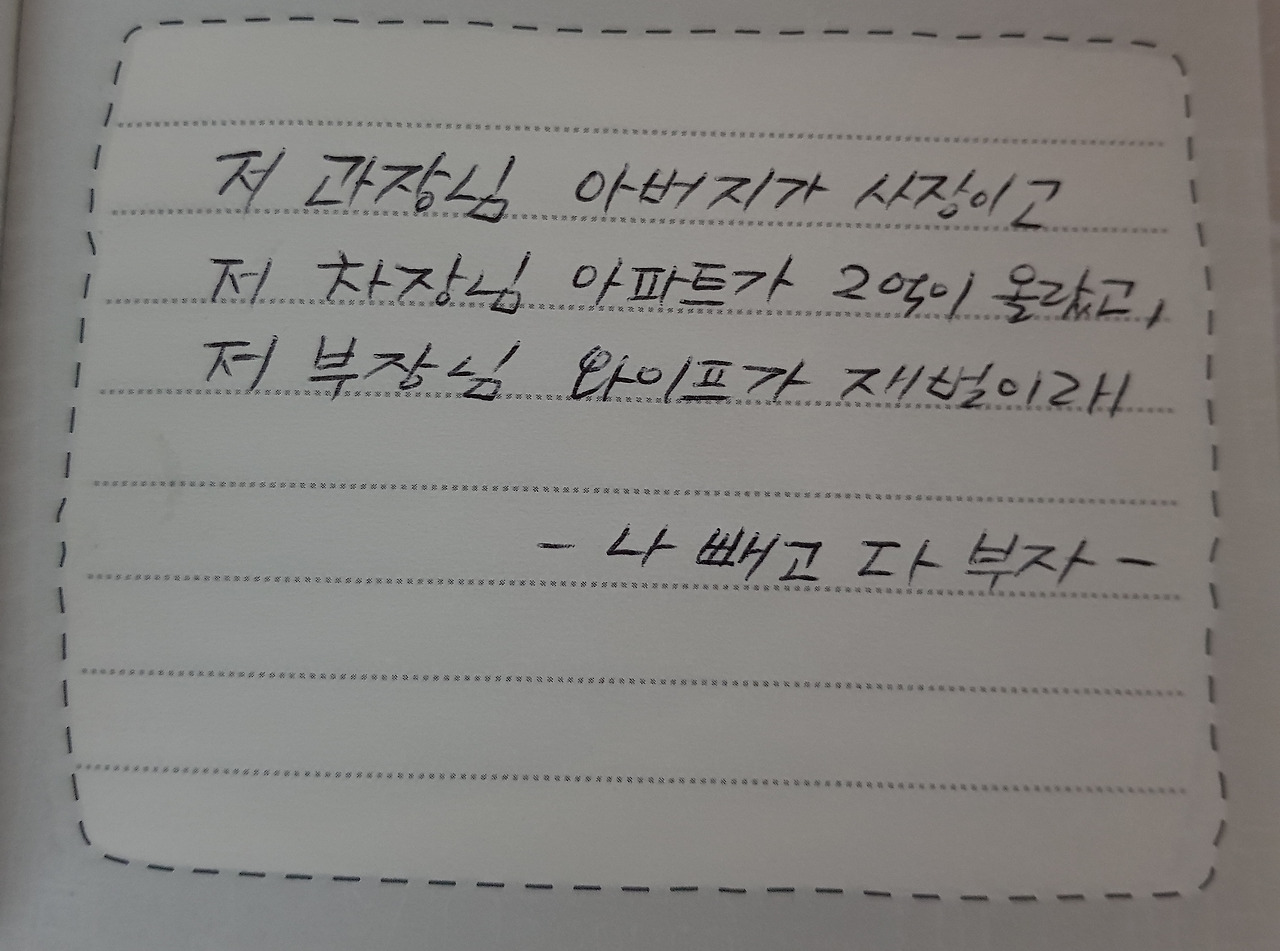 저 과장님 아버지가 사장이고
저 차장님 아파트가 2억이 올랐고,
저 부장님 와이프가 재벌이래
- 나 빼고 다 부자 -